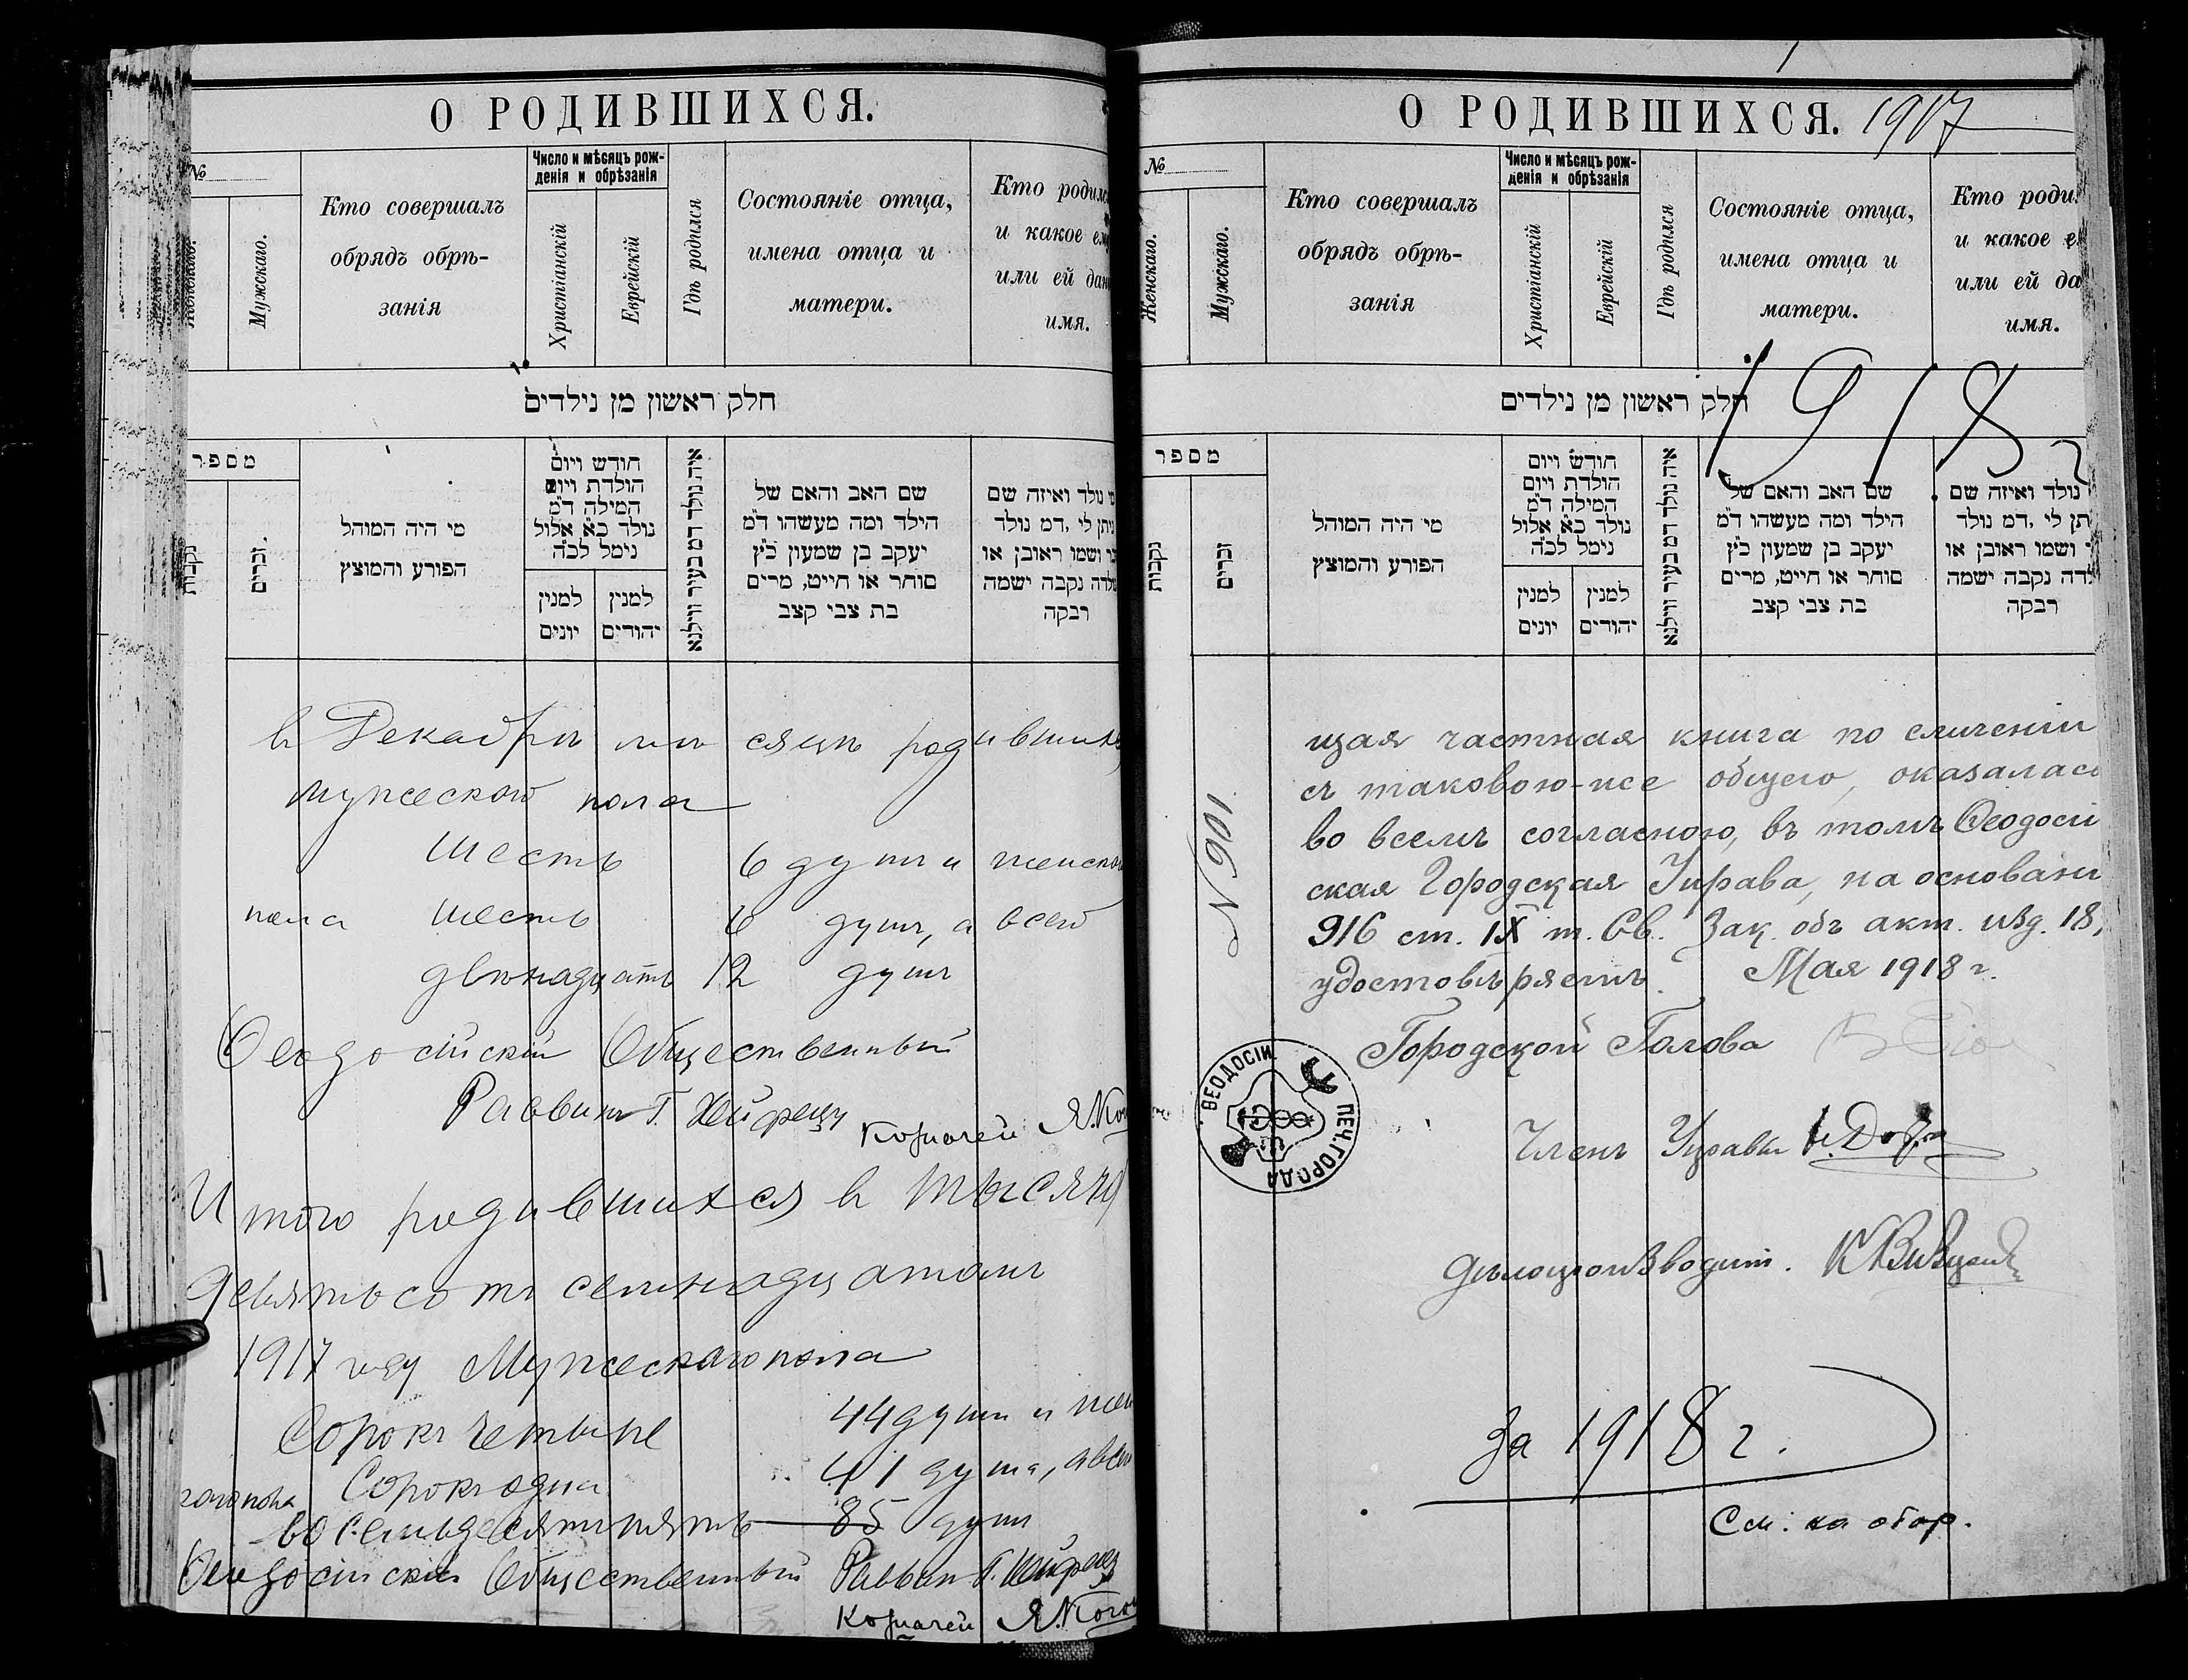 О РОДИВШИХСЯ.
№
Мужскаго.
Кто совершалъ
обрядъ обрѣ-
занія
Число и мѣсяцъ рож-
денія и обрѣзанія
Христіанскій
Еврейскій
Гдѣ родился
Состояніе отца,
имена отца и
матери.
Кто родилс
и какое ему
или ей дан
имя.
חלק ראשון מן נילדים
מספר
נקבות
זכרים.
מי היה המוהל
הפורע והמוצץ
חודש ויום
הולדת ויום
המילה ד"מ
נולד כ"א אלול
נימל לכ"ה
למנין
יונים
למנין
יהודים
איה נולד דמ בעיר ווילנא
שם האב והאם של
הילד ומה מעשהו ד"מ
יעקב בן שמעון כ"ץ
סוחר או חייט, מרים
בת צבי קצב
מי נולד ואיזה שם
ניתן לי, דמ נולד
ושמו ראובן או
נולדה נקבה ישמה
רבקה
в Декабрѣ мѣсяцѣ родивших
мужескаго пола
шесть 6 душъ и женска
пола шесть 6 душъ, а всего
двѣнадцать 12 душъ
Ѳеодосійскій Общественный
Раввинъ Г.
Казначей Я.
Итого родившихся в тысяча
девятьсотъ семнадцатомъ
1917 году Мужескаго пола
Сорокъ четыре 44 души и жен
Сорокъ одна 41 душа, а все
восемьдесятъ пять 85 душъ
Ѳеодосійскій Общественный Раввинъ Г.
Казначей Я.
О РОДИВШИХСЯ. 1917
№
Женскаго.
Мужскаго.
Кто совершалъ
обрядъ обрѣ-
занія
Число и мѣсяцъ рож-
денія и обрѣзанія
Христіанскій
Еврейскій
Гдѣ родился
Состояніе отца,
имена отца и
матери.
Кто роди
и какое е
или ей да
имя.
1918 г.
חלק ראשון מן נילדים
מספר
נקבות
זכרים
מי היה המוהל
הפורע והמוצץ
חודש ויום
הולדת ויום
המילה ד"מ
נולד כ"א אלול
נימל לכ"ה
למנין
יונים
למנין
יהודים
איה נולד דמ בעיר ווילנא
שם האב והאם של
הילד ומה מעשהו ד"מ
יעקב בן שמעון כ"ץ
סוחר או חייט, מרים
בת צבי קצב
נולד ואיזה שם
תן לי, דמ נולד
ושמו ראובן או
לדה נקבה ישמה
רבקה
N 901.
щая частная книга по сличеніи
съ таковою-же общею, оказалась
во всемъ согласною, въ томъ Ѳеодосій
ская Городская Управа, на основані
916 ст. IX т. Св. Зак. объ акт. изд. 18,
удостовѣряетъ. Мая 1918 г.
Городской Голова
ПЕЧ. ГОРОДА ѲЕОДОСІИ.
Членъ Управы
Дѣлопроизводит.
За 1918 г.
См. на обор.